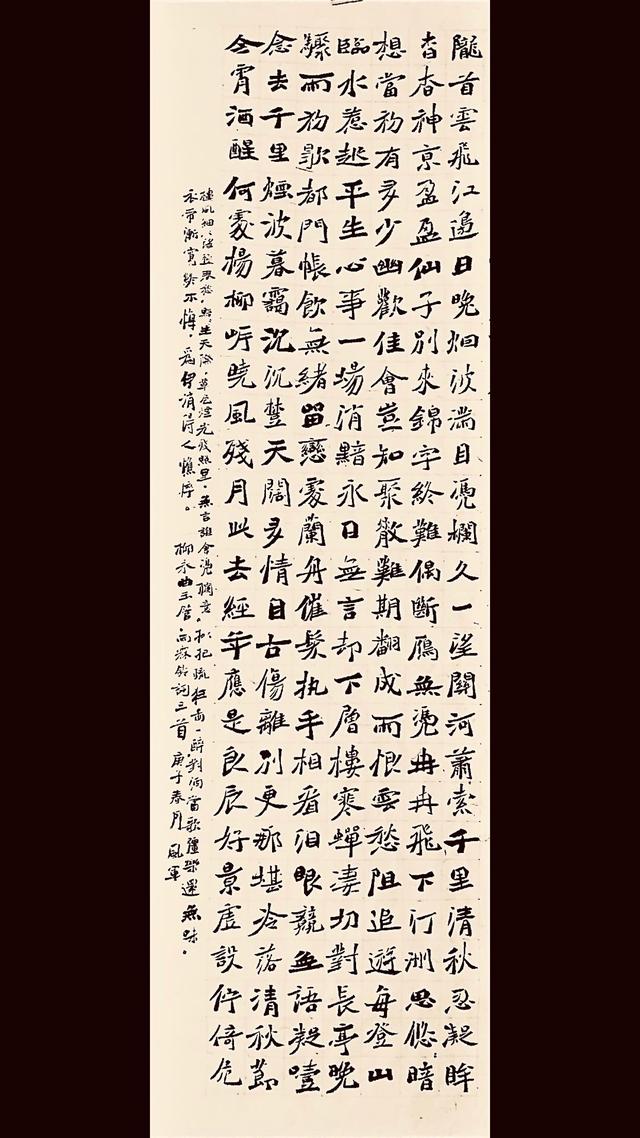 隴首雲飛江邊日晚烟波滿目凭欄久一望關河蕭索千里清秋忍凝眸
杳杳神京盈盈仙子別來錦字終難偶斷鴈無凭冉冉飛下汀洲思悠暗
想當初有多少幽歡佳會豈知聚散難期翻成雨恨雲愁阻追遊每登山
臨水惹起平生心事一場消黯永日無言却下層樓寒蟬淒切對長亭晚
驟雨初歇都門帳飲無緒留戀處蘭舟催髮执手相看泪眼競無語凝噎
念去千里煙波暮靄沉沉楚天闊多情自古傷離別更那堪冷落清秋節
今宵酒醒何處楊柳岸曉風殘月此去經年應是良辰好景虛設佇倚危
樓風細細望極春愁，黯黯生天際，草色煙光殘照里，無言誰會凭闌意。擬把疏狂圖一醉，對酒當歌，強樂還無味。
衣帶漸寬終不悔，為伊消得人憔悴。
柳永曲玉管雨霖鈴詞三首 庚子春月 風軍